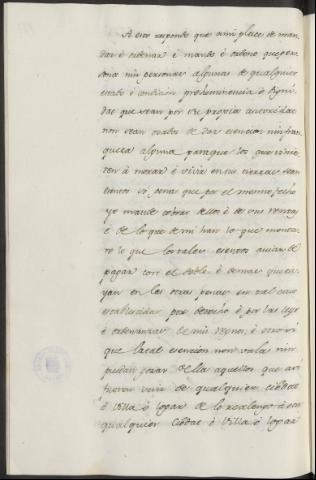 A esto respondo que ami plaze de man-
dar è ordenar è mando è ordeno que per-
sona nin personas algunas de qualquier
estado è condicion prehemminencia ò digni-
dat que sean por su propia autoridat
non sean osados de dar esencion nin fran-
queza alguna paraque los que vinie-
ren à morar è vivir en su tierra sean
esentos so pena que por el mesmo fecho
yo mande cobrar dellos è de sus rentas
è de lo que de mi han lo que monta-
re lo que los tales esentos avian de
pagar con el doblo è demas que ca-
yan en las otras penas en tal caso
establecidas por derecho è por las leyes
è ordenanzas de mis regnos, è otrosi
que la tal esencion non vala nin
puedan gozar della aquellos que assi
fueren vivir de qualquier cibdat
è villa ò logar de lo realengo à otra
qualquier cibdat è villa ò logar